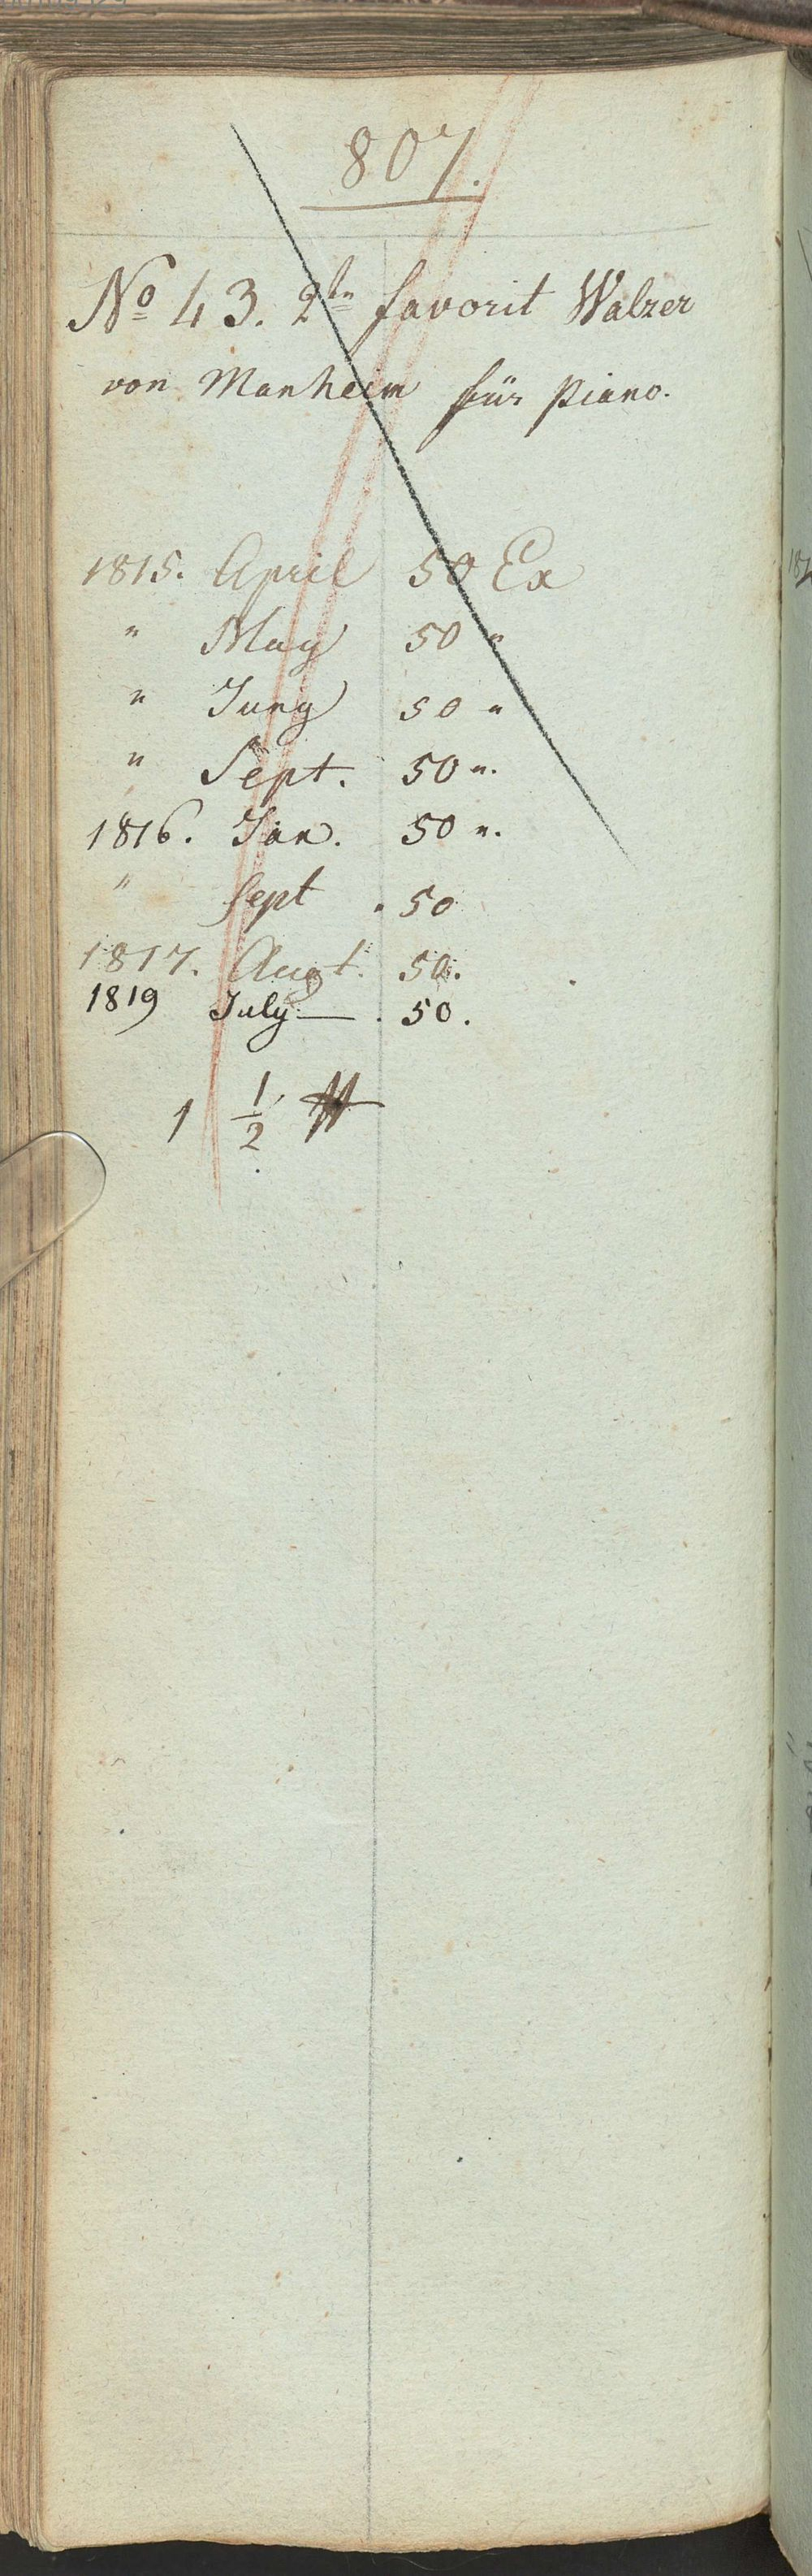 807.
No 43. 2te favorit Walzer
von Manheim für Piano.
1815. April 50 Ex
" May 50 "
" Juny 50 "
" Sept. 50 ".
1816. Jan. 50 ".
" Sept . 50
1817. Augt. 50.
1819 July — . 50.
1 1/2